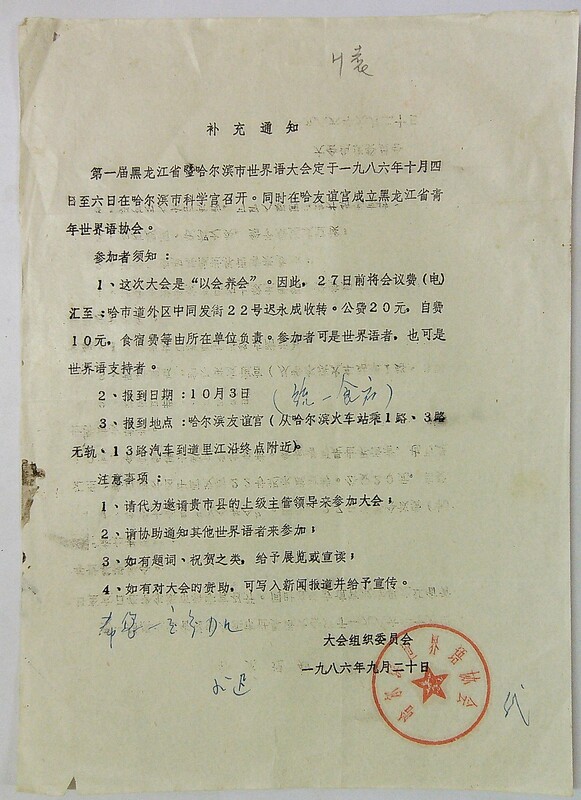 补充通知
第一届黑龙江省暨哈尔滨市世界语大会定于一九八六年十月四
日至六日在哈尔滨市科学宫召开。同时在哈友谊宫成立黑龙江省青
年世界语协会。
参加者须知：
1、这次大会是“以会养会”。因此，27日前将会议费（电）
汇至：哈市道外区中同发街22号迟永成收转。公费20元，自费
10元，食宿费等由所在单位负责。参加者可是世界语者，也可是
世界语支持者。
2、报到日期：10月3日（统一食宿）
3、报到地点：哈尔滨友谊宫（从哈尔滨火车站乘1路、3路
无轨、13路汽车到道里江沿终点附近）。
注意事项：
1、请代为邀请贵市县的上级主管领导来参加大会；
2、请协助通知其他世界语者来参加；
3、如有题词、祝贺之类，给予展览或宣读；
4、如有对大会的资助，可写入新闻报道并给予宣传。
大会组织委员会
一九八六年九月二十日
世界语协会
代